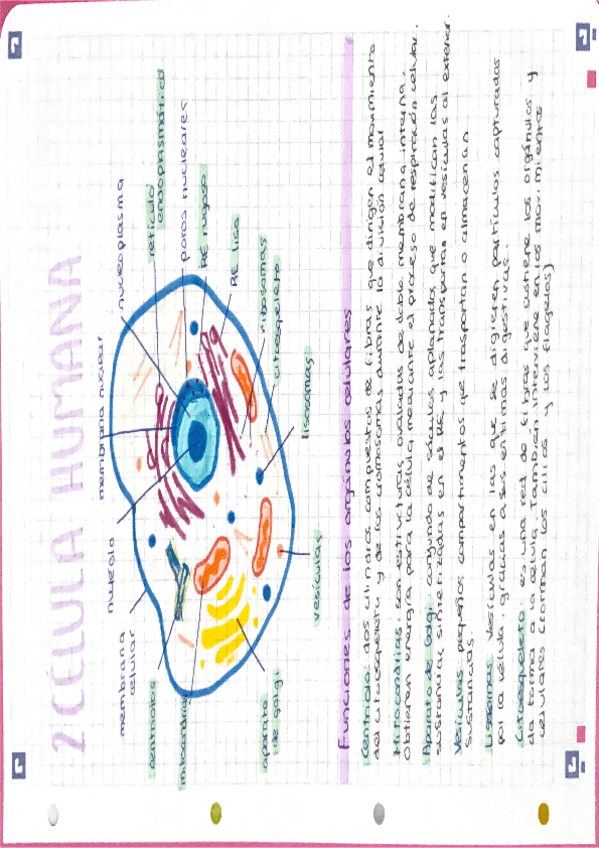 2 CÉLULA HUMANA
membrana celular
nucléolo
membrana nuclear
nucleoplasma
retículo endoplasmático
poros nucleares
RE rugoso
RE liso
ribosomas
citoesqueleto
lisosomas
vesículas
aparato de golgi
mitocondrias
centriolos
Funciones de los orgánulos celulares
Centriolo: dos cilindros compuestos de fibras que dirigen el movimiento
del citoesqueleto y de los cromosomas durante la división celular
Mitocondrias: son estructuras ovaladas de doble membrana interna.
Obtienen energía para la célula mediante el proceso de respiración celular.
Aparato de Golgi: conjunto de sáculos aplanados que modifican las
sustancias sintetizadas en el RE y las transportan en vesículas al exterior.
Vesículas: pequeños compartimentos que transportan o almacenan
sustancias.
Lisosomas: vesículas en las que se digieren partículas capturadas
por la célula, gracias a sus enzimas digestivas.
Citoesqueleto: es una red de fibras que sostiene los orgánulos y
da forma a la célula. También interviene en los movimientos
celulares (forman los cilios y los flagelos)